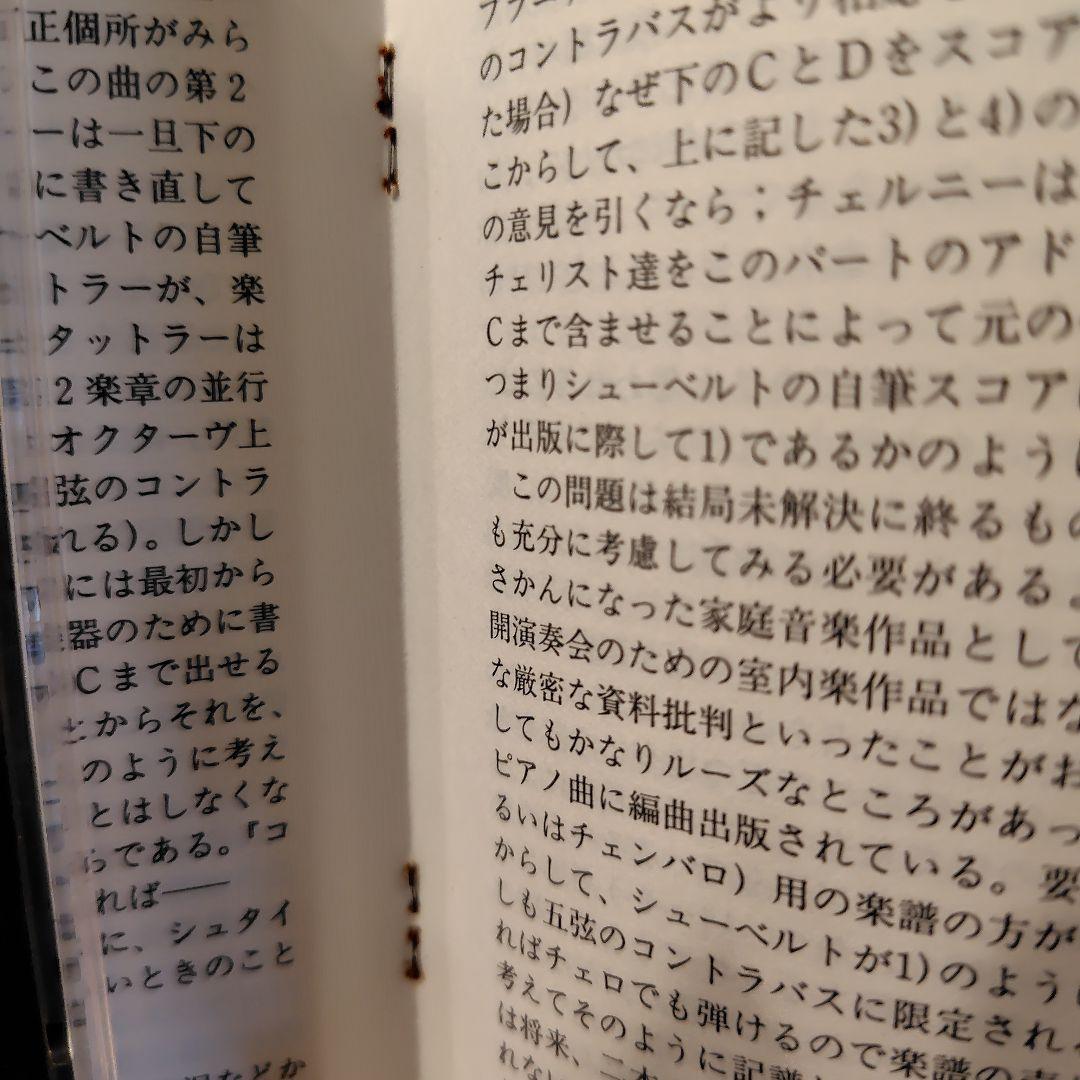 正個所がみら
この曲の第2
ーは一旦下の
に書き直して
ベルトの自筆
トラーが、楽
タットラーは
2楽章の並行
オクターヴ上
弦のコントラ
れる)。しかし
には最初から
器のために書
Cまで出せる
とからそれを、
のように考え
とはしなくな
らである。『コ
れば──
に、シュタイ
いときのこと
などか
のコントラバスがより
た場合) なぜ下のCとDをスコア
こからして、上に記した3)と4)の
の意見を引くなら；チェルニーは
チェリスト達をこのパートのアド
Cまで含ませることによって元の
つまりシューベルトの自筆スコア
が出版に際して1)であるかのよう
この問題は結局未解決に終るもの
も充分に考慮してみる必要がある
さかんになった家庭音楽作品として
開演奏会のための室内楽作品ではな
な厳密な資料批判といったことがお
してもかなりルーズなところがあっ
ピアノ曲に編曲出版されている。要
るいはチェンバロ) 用の楽譜の方が
からして、シューベルトが1)のよう
しも五弦のコントラバスに限定され
ればチェロでも弾けるので楽譜の
考えてそのように記譜
は将来、二本
れない